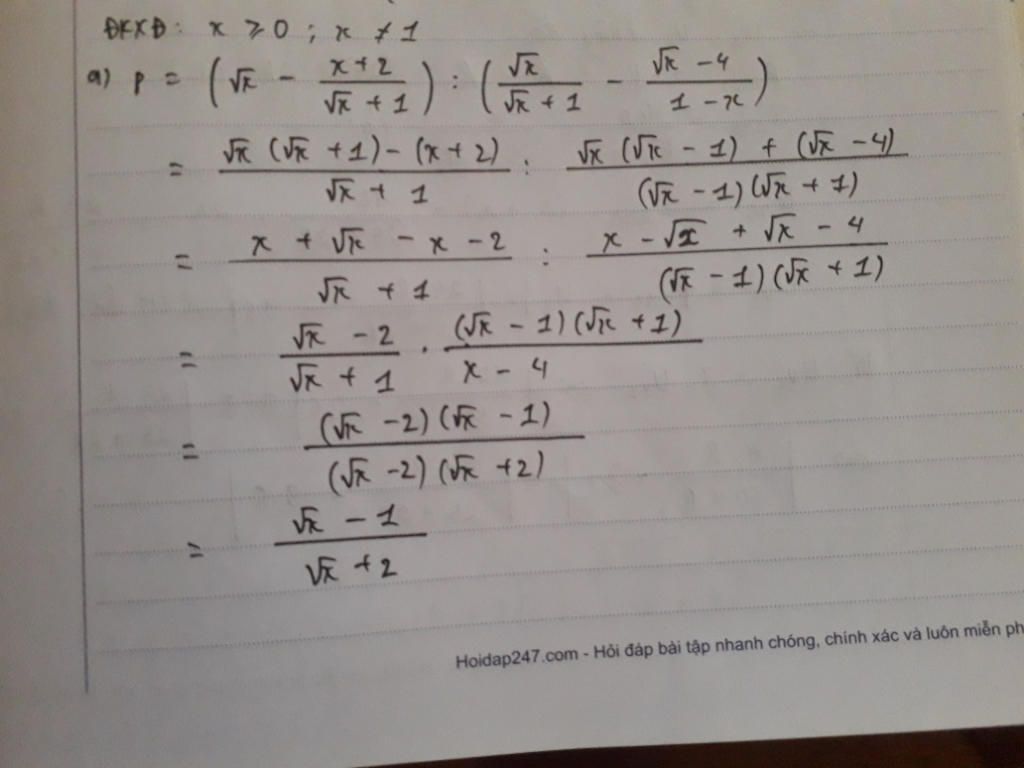 ĐKXĐ: x ≥ 0 ; x ≠ 1
a) P = (√x - (x+2)/(√x + 1)) : (√x/(√x + 1) - (√x - 4)/(1 - x))
= (√x (√x + 1) - (x + 2))/(√x + 1) : (√x (√x - 1) + (√x - 4))/((√x - 1)(√x + 1))
= (x + √x - x - 2)/(√x + 1) : (x - √x + √x - 4)/((√x - 1)(√x + 1))
= (√x - 2)/(√x + 1) . ((√x - 1)(√x + 1))/(x - 4)
= ((√x - 2)(√x - 1))/((√x - 2)(√x + 2))
= (√x - 1)/(√x + 2)
Hoidap247.com - Hỏi đáp bài tập nhanh chóng, chính xác và luôn miễn ph